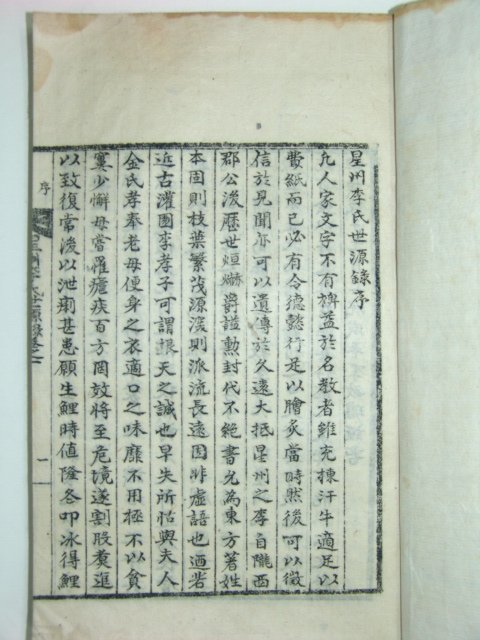 星州李氏世源錄序
凡人家文字不有裨益於名教者雖充棟汗牛適足以
費紙而已必有令德懿行是以膾炙當時然後可以徵
信於見聞亦可以遺傳於久遠大抵星州之李自隴西
郡公後歷世烜爀爵諡勳封代不絕書允為東方著姓
本固則枝葉繁茂源深則派流長遠固非虛語也迺若
近古灌圃李孝子可謂根天之誠也早失所怙與夫人
金氏孝奉老母便身之衣適口之味靡不用極不以貧
窶少懈母嘗罹瘧疾百方罔效將至危境遂割股煑進
以致復常後以泄痢甚患願生鯉時値隆冬叩冰得鯉
序
星州李氏世源錄卷之一
一